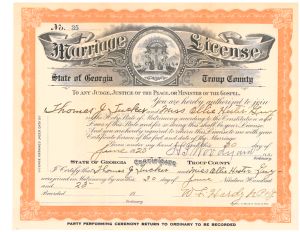 No. 25
Marriage License
State of Georgia Troup County
TO ANY JUDGE, JUSTICE OF THE PEACE, OR MINISTER OF THE GOSPEL.
You are hereby authorized to join
Thomas J. Tucker and Miss Ellie
in the Holy State of Matrimony according to the Constitution and
Laws of this State and for so doing this shall be your License
And you are hereby required to return this License to me with your
Certificate hereon of the fact and date of the Marriage
Given under my hand and seal this 30 day
June
Ordinary
STATE OF GEORGIA Certificate TROUP COUNTY
I Certify that Thomas J Tucker and Miss Ellie
were joined in Matrimony by me this 30 day of June Nineteen Hundred
and 23
Recorded 19
Ordinary
PARTY PERFORMING CEREMONY RETURN TO ORDINARY TO BE RECORDED